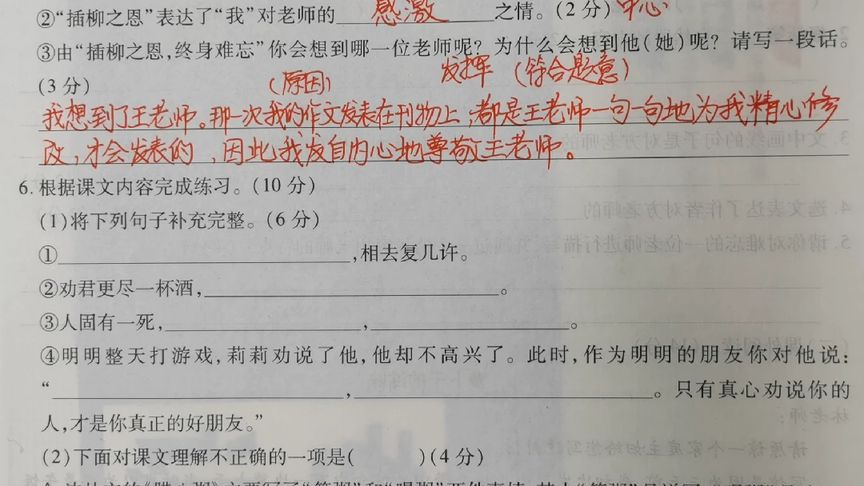 ②“插柳之恩”表达了“我”对老师的 感激 之情。(2 分) 中心
③由“插柳之恩,终身难忘”你会想到哪一位老师呢? 为什么会想到他(她)呢? 请写一段话。
(3 分) (原因) 发挥 (符合题意)
我想到了王老师。那一次我的作文发表在刊物上,都是王老师一句一句地为我精心修
改,才会发表的,因此我发自内心地尊敬王老师。
6.根据课文内容完成练习。(10 分)
(1)将下列句子补充完整。(6 分)
① ,相去复几许。
②劝君更尽一杯酒, 。
③人固有一死, , 。
④明明整天打游戏,莉莉劝说了他,他却不高兴了。此时,作为明明的朋友你对他说:
“ , 。只有真心劝说你的
人,才是你真正的好朋友。”
(2)下面对课文理解不正确的一项是( )(4 分)